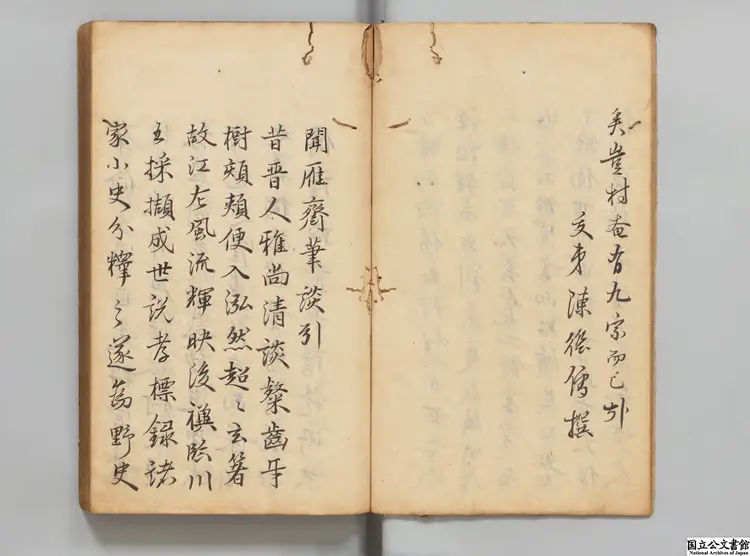 矣豈村有九宗而已耶
友弟陳繼儒撰
聞雁齋筆談引
昔晉人雅尚清談粲齒牙
樹頰頰便入泓然超〻玄箸
故江左風流輝映後禩臨川
王採擷成世説孝標録諸
家小史分釋之遂為野史
国立公文書館
National Archives of Japan